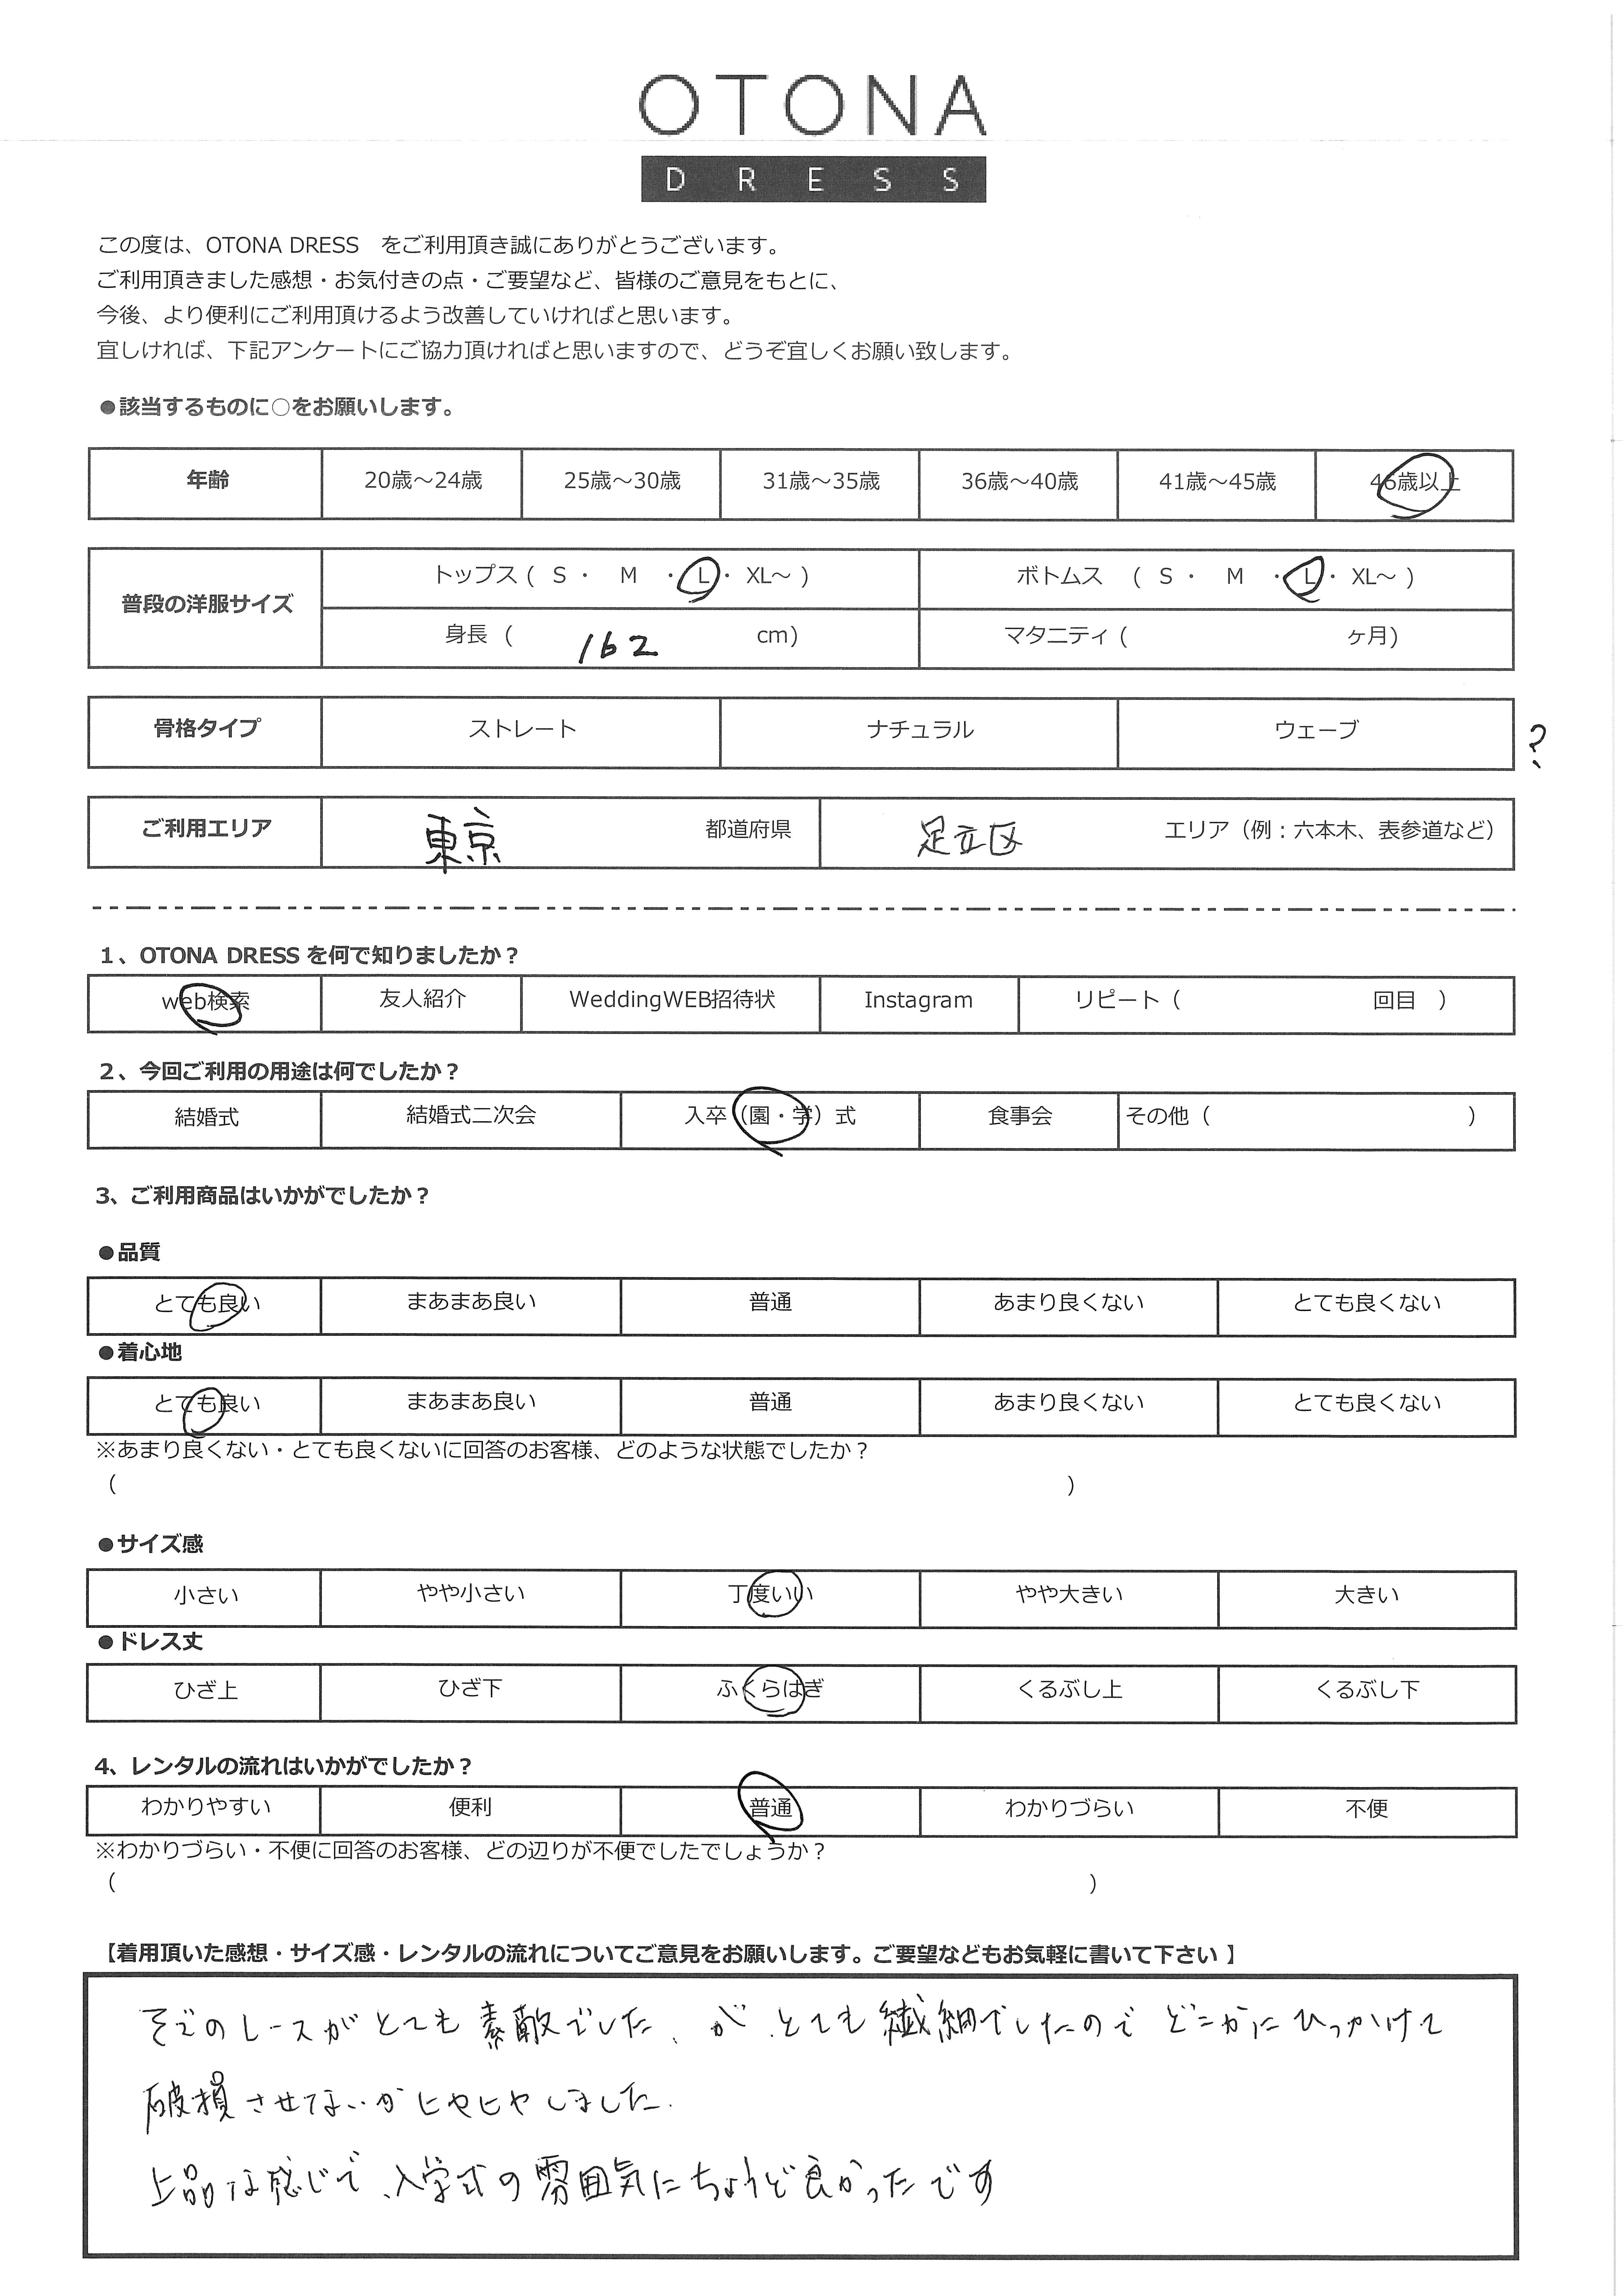 OTONA
DRESS
この度は、OTONA DRESS をご利用頂き誠にありがとうございます。
ご利用頂きました感想・お気付きの点・ご要望など、皆様のご意見をもとに、
今後、より便利にご利用頂けるよう改善していければと思います。
宜しければ、下記アンケートにご協力頂ければと思いますので、どうぞ宜しくお願い致します。
●該当するものに○をお願いします。
年齢 20歳～24歳 25歳～30歳 31歳～35歳 36歳～40歳 41歳～45歳 46歳以上
普段の洋服サイズ
トップス ( S ・ M ・ L ・ XL～ ) ボトムス ( S ・ M ・ L ・ XL～ )
身長 ( 162 cm) マタニティ ( ヶ月)
骨格タイプ ストレート ナチュラル ウェーブ ?
ご利用エリア 東京 都道府県 足立区 エリア（例：六本木、表参道など）
1、OTONA DRESS を何で知りましたか？
web検索 友人紹介 WeddingWEB招待状 Instagram リピート（ 回目 ）
2、今回ご利用の用途は何でしたか？
結婚式 結婚式二次会 入卒（園・学）式 食事会 その他（ ）
3、ご利用商品はいかがでしたか？
●品質
とても良い まあまあ良い 普通 あまり良くない とても良くない
●着心地
とても良い まあまあ良い 普通 あまり良くない とても良くない
※あまり良くない・とても良くないに回答のお客様、どのような状態でしたか？
（ ）
●サイズ感
小さい やや小さい 丁度いい やや大きい 大きい
●ドレス丈
ひざ上 ひざ下 ふくらはぎ くるぶし上 くるぶし下
4、レンタルの流れはいかがでしたか？
わかりやすい 便利 普通 わかりづらい 不便
※わかりづらい・不便に回答のお客様、どの辺りが不便でしたでしょうか？
（ ）
【着用頂いた感想・サイズ感・レンタルの流れについてご意見をお願いします。ご要望などもお気軽に書いて下さい 】
そでのレースがとても素敵でした、が、とても繊細でしたのでどこかにひっかけて
破損させてないかヒヤヒヤしました.
上品な感じで、入学式の雰囲気にちょうど良かったです